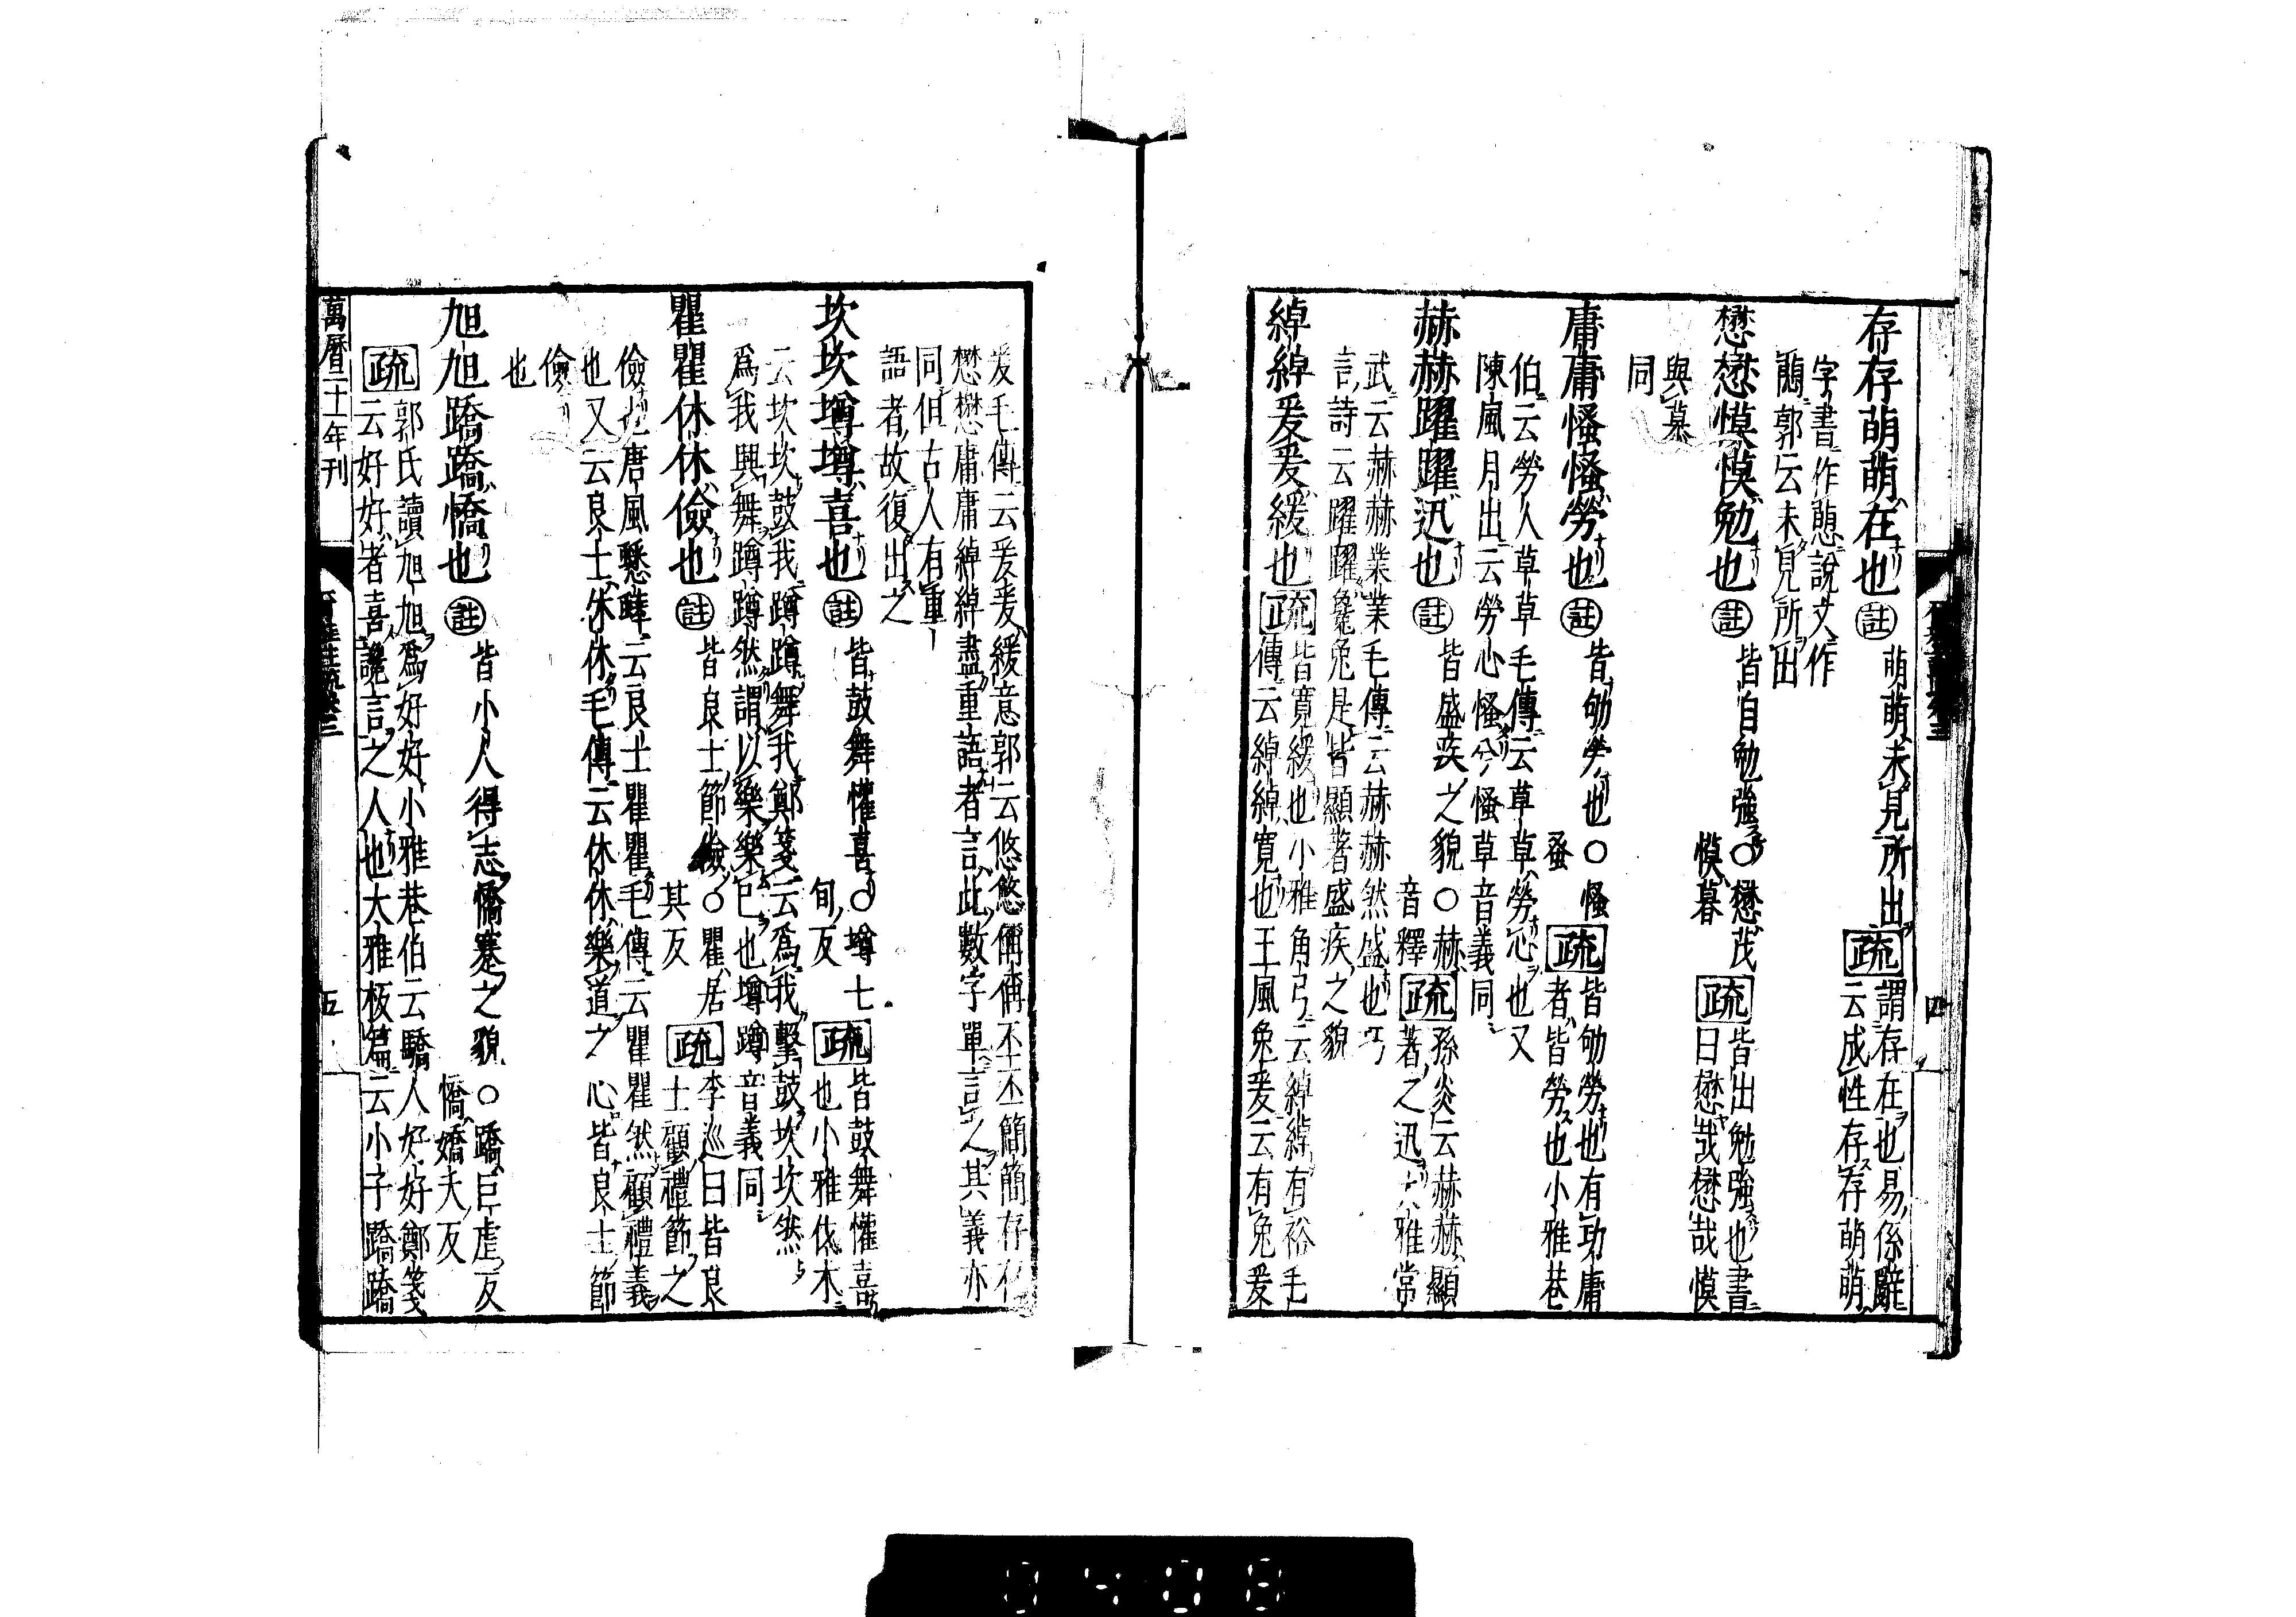 存存萌萌在也 註 萌萌未見所出 疏 謂存存在也易係辭
云成性存存萌萌
字書作蕄說文作
蕄郭云未見所出
懋懋慔慔勉也 註 皆自勉強○懋茂
慔暮 疏 皆出勉強也書
曰懋哉懋哉慔
與慕
同
庸庸慅慅勞也 註 皆劬勞也○慅
騷 疏 皆劬勞也有功庸
者皆勞也小雅巷
伯云勞人草草毛傳云草草勞心也又
陳風月出云勞心慅兮慅草音義同
赫赫躍躍迅也 註 皆盛疾之貌○赫
音釋 疏 孫炎云赫赫顯
著之迅大雅常
武云赫赫業業毛傳云赫赫然盛也巧
言詩云躍躍毚兔是皆顯著盛疾之貌
綽綽爰爰緩也 疏 皆寛緩也小雅角弓云綽綽有裕毛
傳云綽綽寛也王風兔爰云有兔爰
爰毛傳云爰爰緩意郭云悠悠偁偁丕丕簡簡存存
懋懋庸庸綽綽盡重語者言此數字單言之其義亦
同但古人有重
語者故復出之
坎坎墫墫喜也 註 皆鼓舞懽喜○墫七
旬反 疏 皆鼓舞懽喜
也小雅伐木
云坎坎鼓我蹲蹲舞我鄭箋云爲我擊鼓坎坎然
爲我興舞蹲蹲然謂以樂樂已也墫蹲音義同
瞿瞿休休儉也 註 皆良士節儉○瞿居
其反 疏 李巡曰皆良
士顧禮節之
儉也唐風蟋蟀云良士瞿瞿毛傳云瞿瞿然顧禮義
也又云良士休休毛傳云休休樂道之心皆良士節
儉
也
旭旭蹻蹻憍也 註 皆小人得志憍蹇之貌○蹻巨虐反
憍嬌夭反
疏 郭氏讀旭旭爲好好小雅巷伯云驕人好好鄭箋
云好好者喜讒言之人也大雅板篇云小子蹻蹻
萬曆二十一年刊
五
四